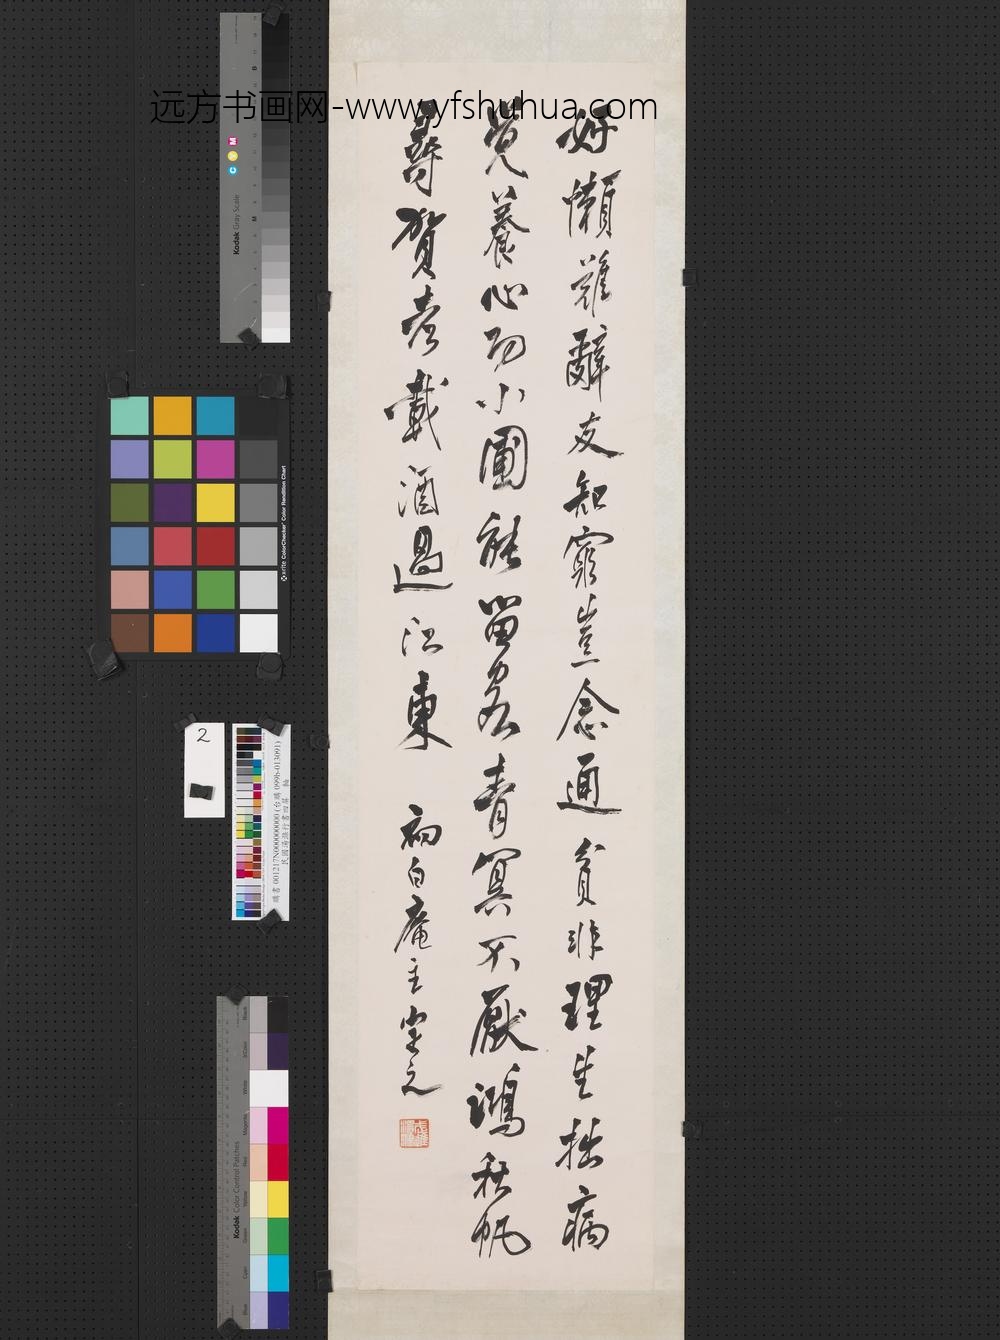 远方书画网-www.yfshuhua.com
好懶難辭友知窮豈念通貧非理生拙病
覺養心功小圃能留客青冥不厭鴻秋帆
尋賀老載酒過江東 初白庵主
Kodak Gray Scale
C Y M
x-rite ColorChecker Color Rendition Chart
2
購書 001217N000000000 (台購 099b-013091)
民國湯滌行書四屏 軸
Kodak Color Control Patches
Blue Cyan Green Yellow Red Magenta White 3/Color Black